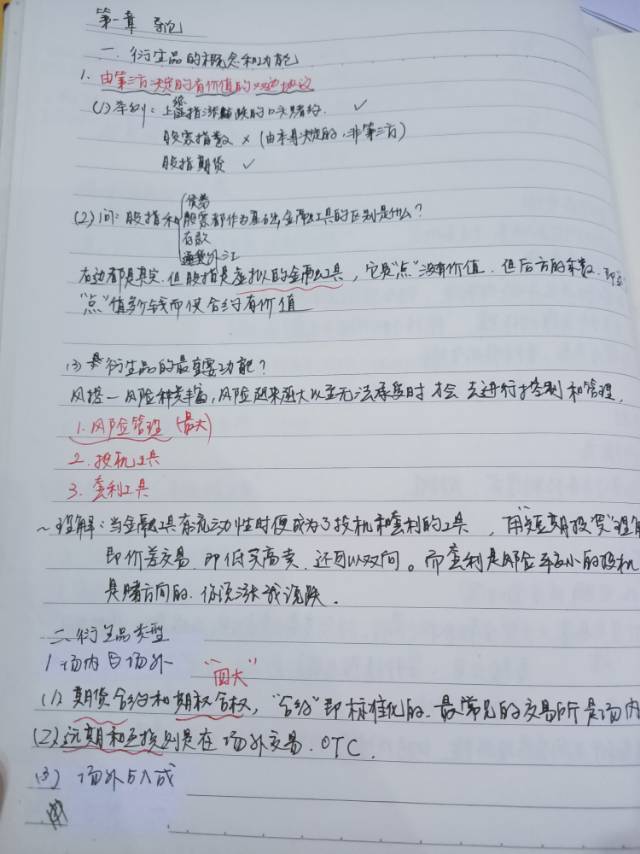 第一章 导论
一.衍生品的概念和功能
1. 由第三方决定的有价值的
(1)举例: 上证指涨幅跌的口头赌约. ✓
股票指数 × (由本身决定的,非第三方)
股指期货 ✓
(2)问: 股指和 债券
股票都作为基础金融工具的区别是什么?
存款
外汇
右边都是真实.但股指是虚拟的金融工具, 它是"点"没有价值. 但后方的乘数.
"点"值多少钱而使合约有价值
(3) 衍生品的最重要功能?
风控—风险种类丰富,风险越来越大以至无法承受时才会去进行控制和管理.
1.风险管理 (最大)
2.投机工具
3.套利工具
~理解:当金融工具有流动性时便成为了投机和套利的工具, 用"短期投资"理解
即价差交易 即低买高卖. 还可以双向。而套利是风险至小的投机
是赌方向的.你说涨我说跌.
二.衍生品类型
1 场内与场外 "四大"
(1) 期货合约和期权合权, "合约"即标准化的.最常见的交易所是场内
(2)远期和互换则是在场外交易. OTC.
(3) 场外占大成